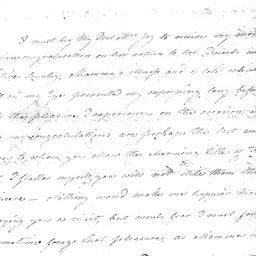 I must beg My Dear Mrs Jay to receive my most
congratulation on her return to her Friends and
Native Country; Mamma's illness and a cold which
in my Eye prevented my expressing long before
this the pleasure I experience on the occasion;
my congratulations are perhaps the last and
to whom you allow the charming title of
I flatter myself, you will not deem them the
sincere — Nothing would make me happier than
paying you a visit, but much fear I must for
sometime forego that pleasure, as Mamma's